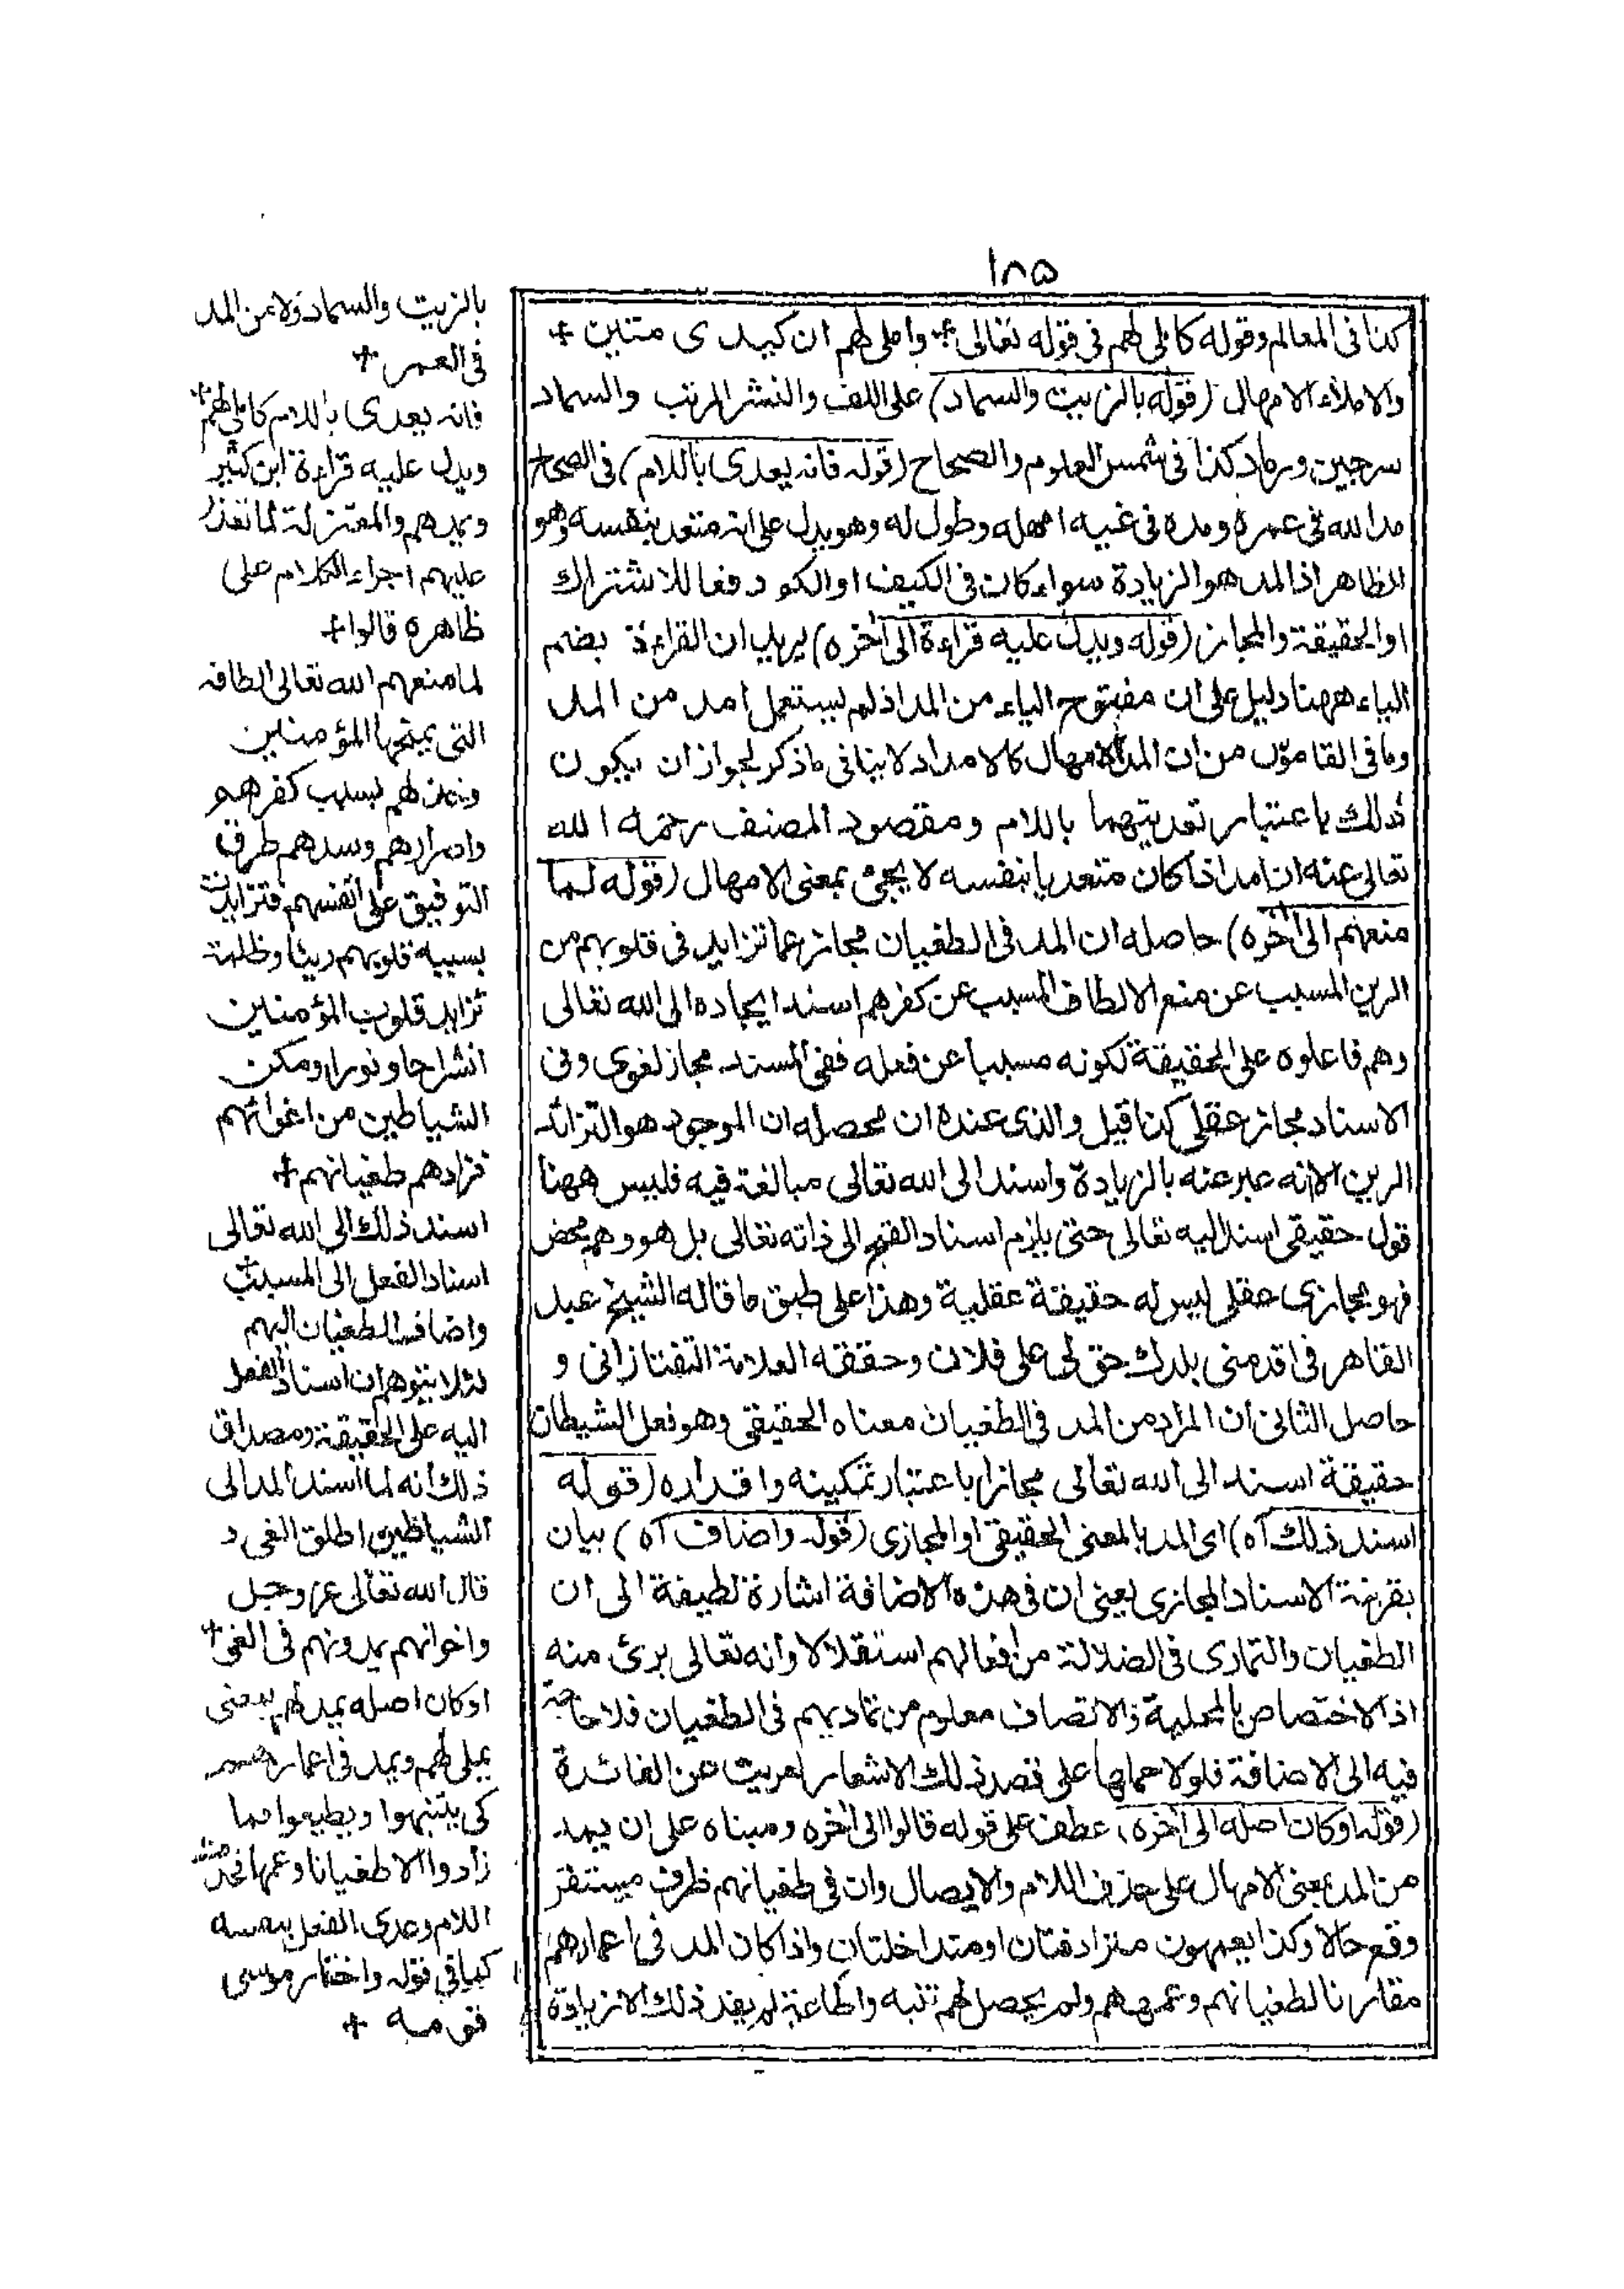 ١٨٥
كذا فى المعالم وقوله كاملى لهم فى قوله تعالى * واملى لهم ان كيدى متين +
والاملاء الامهال (قوله بالزيت والسماد) على اللف والنشر المرتب والسماد
سرجين ورماد كذا فى شمس العلوم والصحاح (قوله فانه يعدى باللام) فى الصحاح
مد الله فى عمره ومده فى غيه امهله وطول له وهو يدل على انه متعد بنفسه وهو
الظاهر اذ المد هو الزيادة سواء كان فى الكيف او الكم دفعا للاشتراك
او الحقيقة والمجاز (قوله ويدل عليه قراءة الى آخره) يريد ان القراءة بضم
الياء ههنا دليل على ان مفتوح الياء من المد اذ لم يستعمل امد من المد
وما فى القاموس من ان المد الامهال كالامداد لا ينافى ما ذكر لجواز ان يكون
ذلك باعتبار تعديتهما باللام ومقصود المصنف رحمه الله
تعالى عنه ان امد اذا كان متعديا بنفسه لا يجئ بمعنى الامهال (قوله لما
منعهم الى آخره) حاصله ان المد فى الطغيان مجاز عما تزايد فى قلوبهم من
الرين المسبب عن منع الالطاف المسبب عن كفرهم اسند ايجاده الى الله تعالى
وهم فاعلوه على الحقيقة لكونه مسببا عن فعله ففى المسند مجاز لغوى وفى
الاسناد مجاز عقلى كذا قيل والذى عنده ان محصله ان الموجود هو التزائد
الرين الا انه عبر عنه بالزيادة واسند الى الله تعالى مبالغة فيه فليس ههنا
قول حقيقى اسند اليه تعالى حتى يلزم اسناد القبح الى ذاته تعالى بل هو وهم محض
فهو مجازى عقلى ليس له حقيقة عقلية وهذا على طبق ما قاله الشيخ عبد
القاهر فى اقدمنى بلدك حق لى على فلان وحققه العلامة التفتازانى و
حاصل الثانى ان المراد من المد فى الطغيان معناه الحقيقى وهو فعل الشيطان
حقيقة اسند الى الله تعالى مجازا باعتبار تمكينه واقداره (قوله
اسند ذلك آه) اى المد بالمعنى الحقيقى او المجازى (قوله واضاف آه) بيان
بقرينة الاسناد المجازى يعنى ان فى هذه الاضافة اشارة لطيفة الى ان
الطغيان والتمادى فى الضلالة من افعالهم استقلالا وانه تعالى برئ منه
اذ الاختصاص بالمحلية والاتصاف معلوم من تماديهم فى الطغيان فلا حاجة
فيه الى الاضافة فلولا حملها على قصد ذلك الاشعار لعريت عن الفائدة
(قوله او كان اصله الى آخره) عطف على قوله قالوا الى آخره ومبناه على ان يمد
من المد بمعنى الامهال على حذف اللام والايصال وان فى طغيانهم ظرف مستقر
وقع حالا وكذا يعمهون مترادفتان او متداخلتان واذا كان المد فى اعمارهم
مقارنا لطغيانهم وعمههم ولم يحصل لهم تنبه واطاعة لم يفد ذلك الا زيادة
بالزيت والسماد ولا من المد
فى العمر +
فانه يعدى باللام كاملى لهم
ويدل عليه قراءة ابن كثير
ويمدهم والمعتزلة لما تعذر
عليهم اجراء الكلام على
ظاهره قالوا +
لما منعهم الله تعالى الطافه
التى يمنحها المؤمنين
وخذلهم بسبب كفرهم
واصرارهم وسدهم طرق
التوفيق على انفسهم فتزايدت
بسببه قلوبهم رينا وظلمة
تزايد قلوب المؤمنين
انشراحا ونورا ومكن
الشياطين من اغوائهم
فزادهم طغيانهم +
اسند ذلك الى الله تعالى
اسناد الفعل الى المسبب
واضاف الطغيان اليهم
لئلا يتوهم ان اسناد الفعل
اليه على الحقيقة ومصداق
ذلك انه لما اسند المد الى
الشياطين اطلق الغى و
قال الله تعالى عز وجل
واخوانهم يمدونهم فى الغى +
او كان اصله يمد لهم بمعنى
يملى لهم ويمد فى اعمارهم
كى يتنبهوا ويطيعوا فما
زادوا الا طغيانا وعمها فحذف
اللام وعدى الفعل بنفسه
كما فى قوله واختار موسى
قومه +